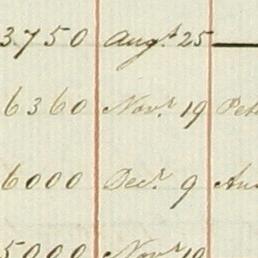 3750 Augt. 25
6360 Novr. 19 Pet
6000 Decr. 9 An
5000 Novr. 19